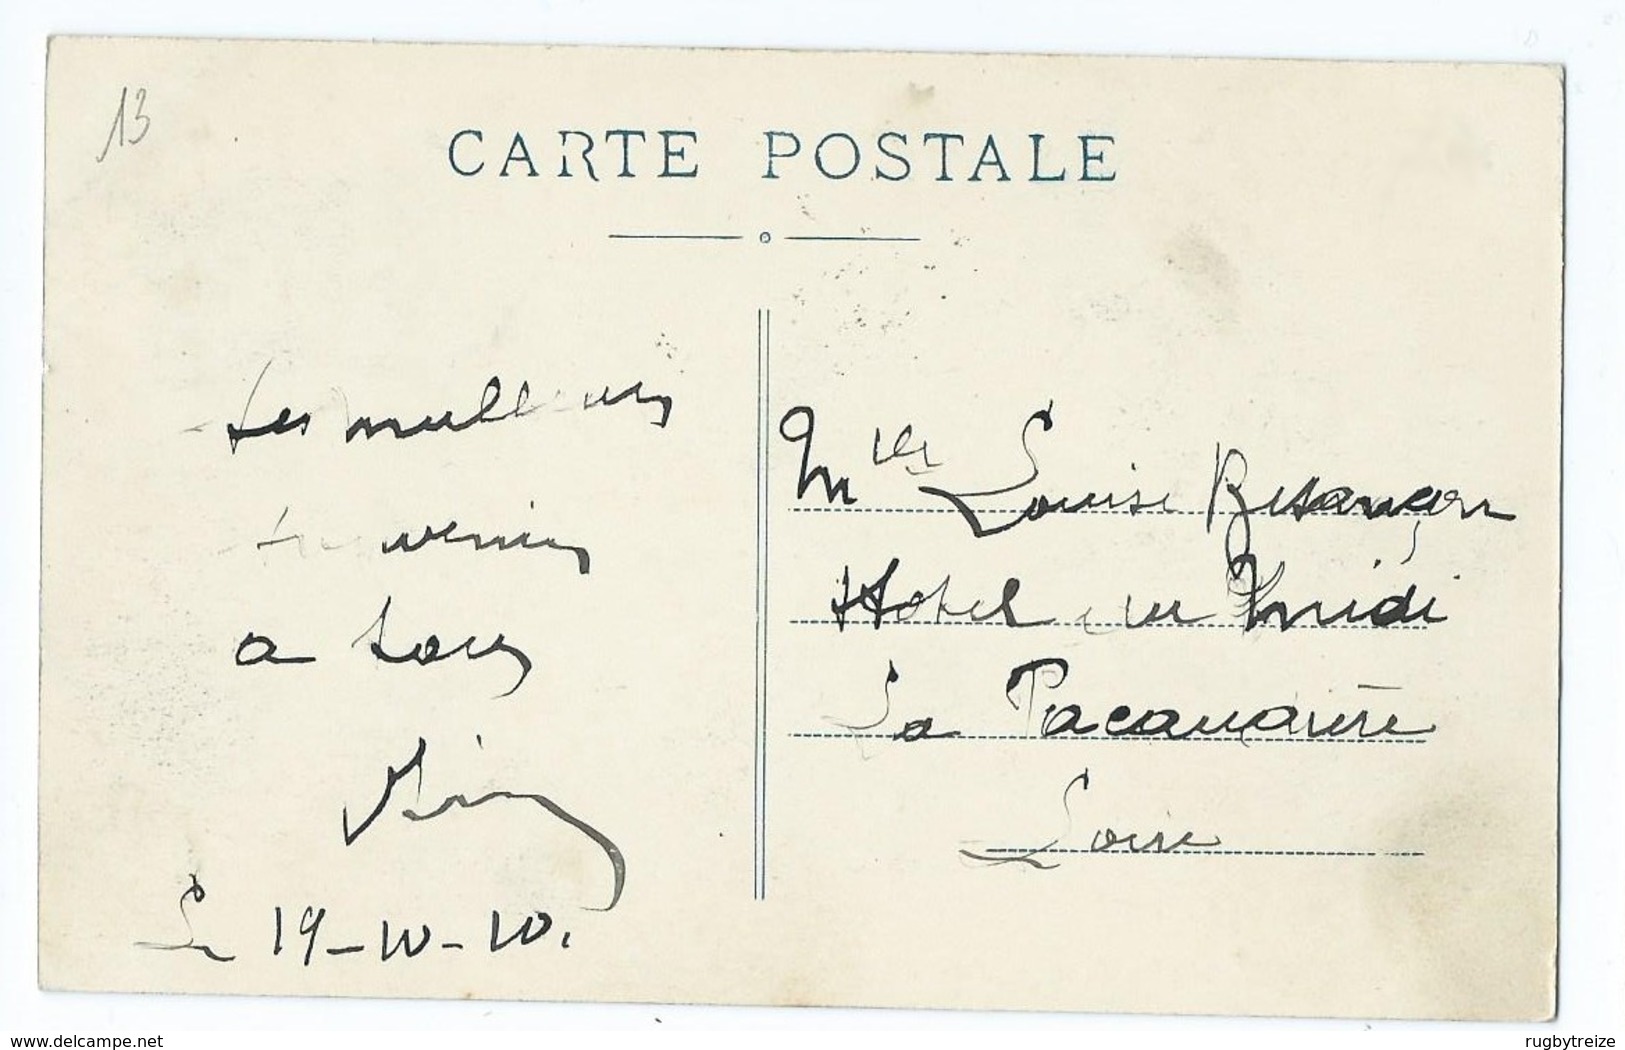 13
CARTE POSTALE
Les meilleurs
souvenirs
a tous
Le 19-10-10.
Mlle Louise Besançon
Hotel du Midi
La Pacaudière
Loire
www.delcampe.net
rugbytreize